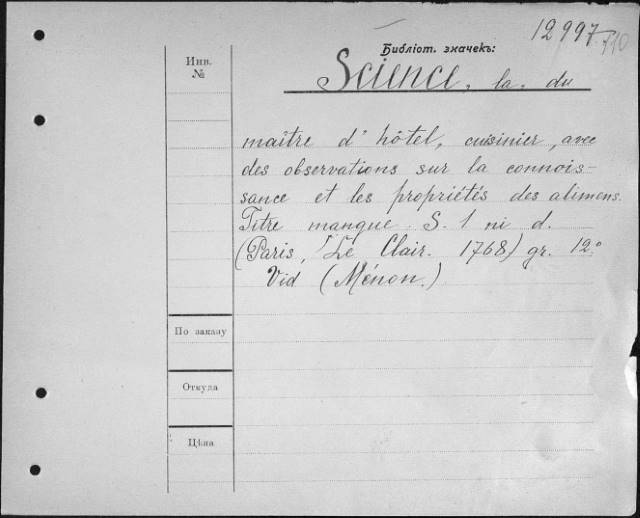 12997
Библіот. значекъ:
Инв.
№
Science, la, du
maître d'hôtel, cuisinier, avec
des observations sur la connois-
sance et les propriétés des alimens.
Titre manque. S. l ni d.
(Paris, Le Clair. 1768) gr. 12º
Vid (Ménon.)
По заказу
Откуда
Цѣна